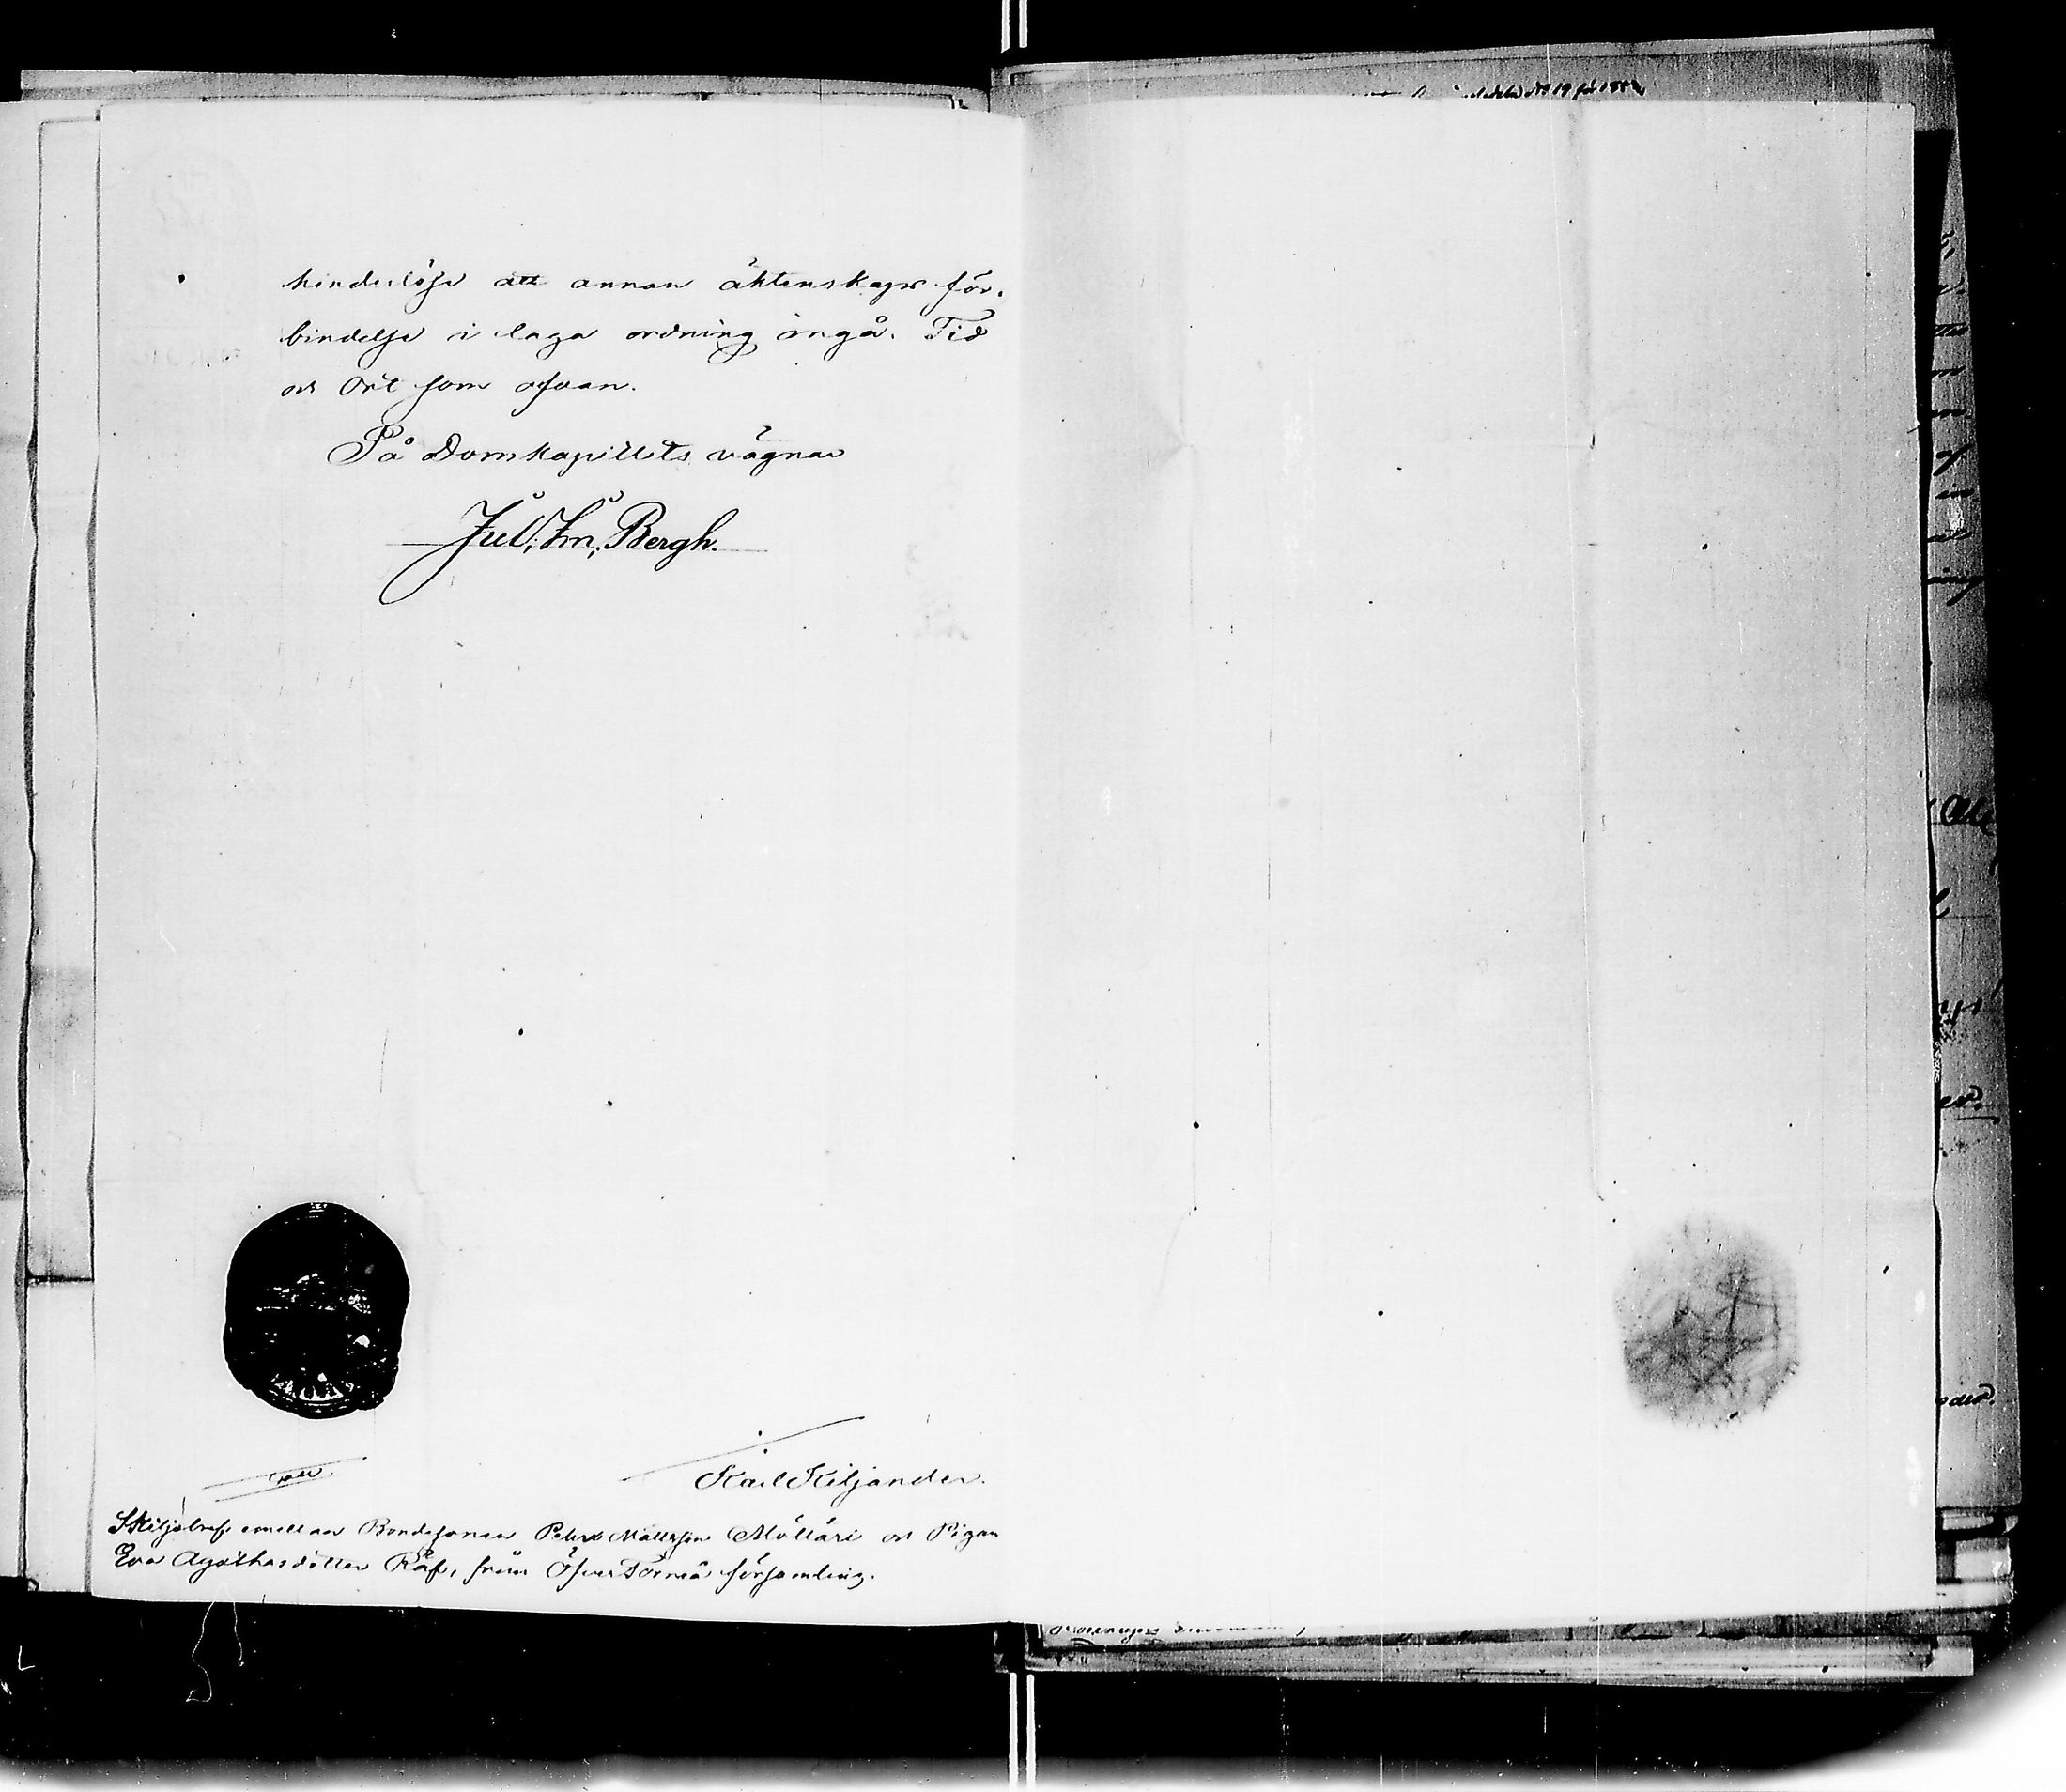 hinderlöse att annan äktenskaps för-
bindelse i laga ordning ingå. Tid
och Ort som ofvan.
På Domkapitlets vägnar
Jul. Im. Bergh.
Karl Kiljander.
Skiljobref emellan Bondesonen Petter Mattsson Möttäri och Pigan
Eva Agathasdotter Räf, från Öfver Torneå församling.